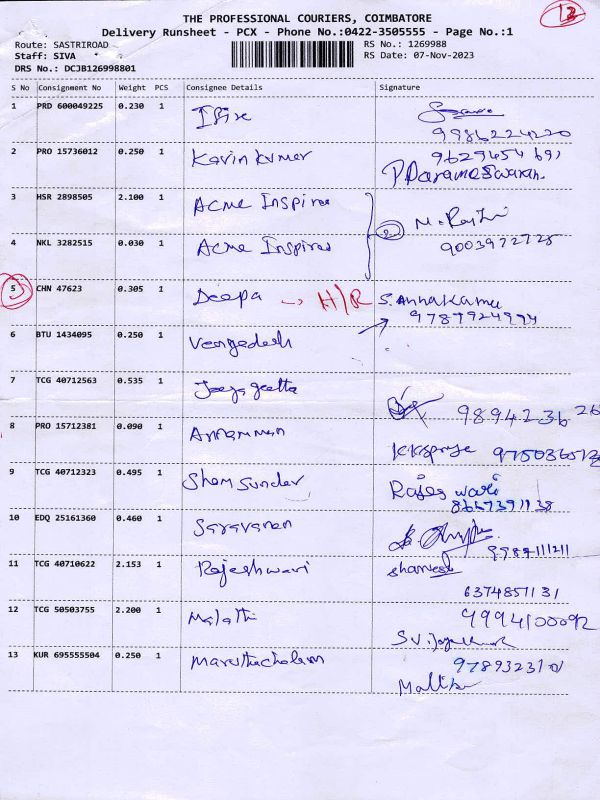 THE PROFESSIONAL COURIERS, COIMBATORE
12
Delivery Runsheet - PCX - Phone No.:0422-3505555 - Page No.:1
Route: SASTRIROAD
RS No.: 1269988
Staff: SIVA
RS Date: 07-Nov-2023
DRS No.: DCJB126998801
S No Consignment No Weight PCS Consignee Details Signature
1 PRD 600049225 0.230 1
9986224220
2 PRO 15736012 0.250 1 Kavin Kumar 9629454691
P. Parameswaran.
3 HSR 2898505 2.100 1 Acme Inspires
2
4 NKL 3282515 0.030 1 Acme Inspires 9003972728
5 CHN 47623 0.305 1 Deepa → H/R S. Annakamu
9787924994
6 BTU 1434095 0.250 1
7 TCG 40712563 0.535 1 Jeeja geetta
989423626
8 PRO 15712381 0.090 1
9 TCG 40712323 0.495 1 Sham Sunder Rajeswari
8667391138
10 EDQ 25161360 0.460 1 Saravanan
11 TCG 40710622 2.153 1 Rajeshwari
6374851131
12 TCG 50503755 2.200 1 Malathi 9994100092
13 KUR 695555504 0.250 1 Maruthachalam